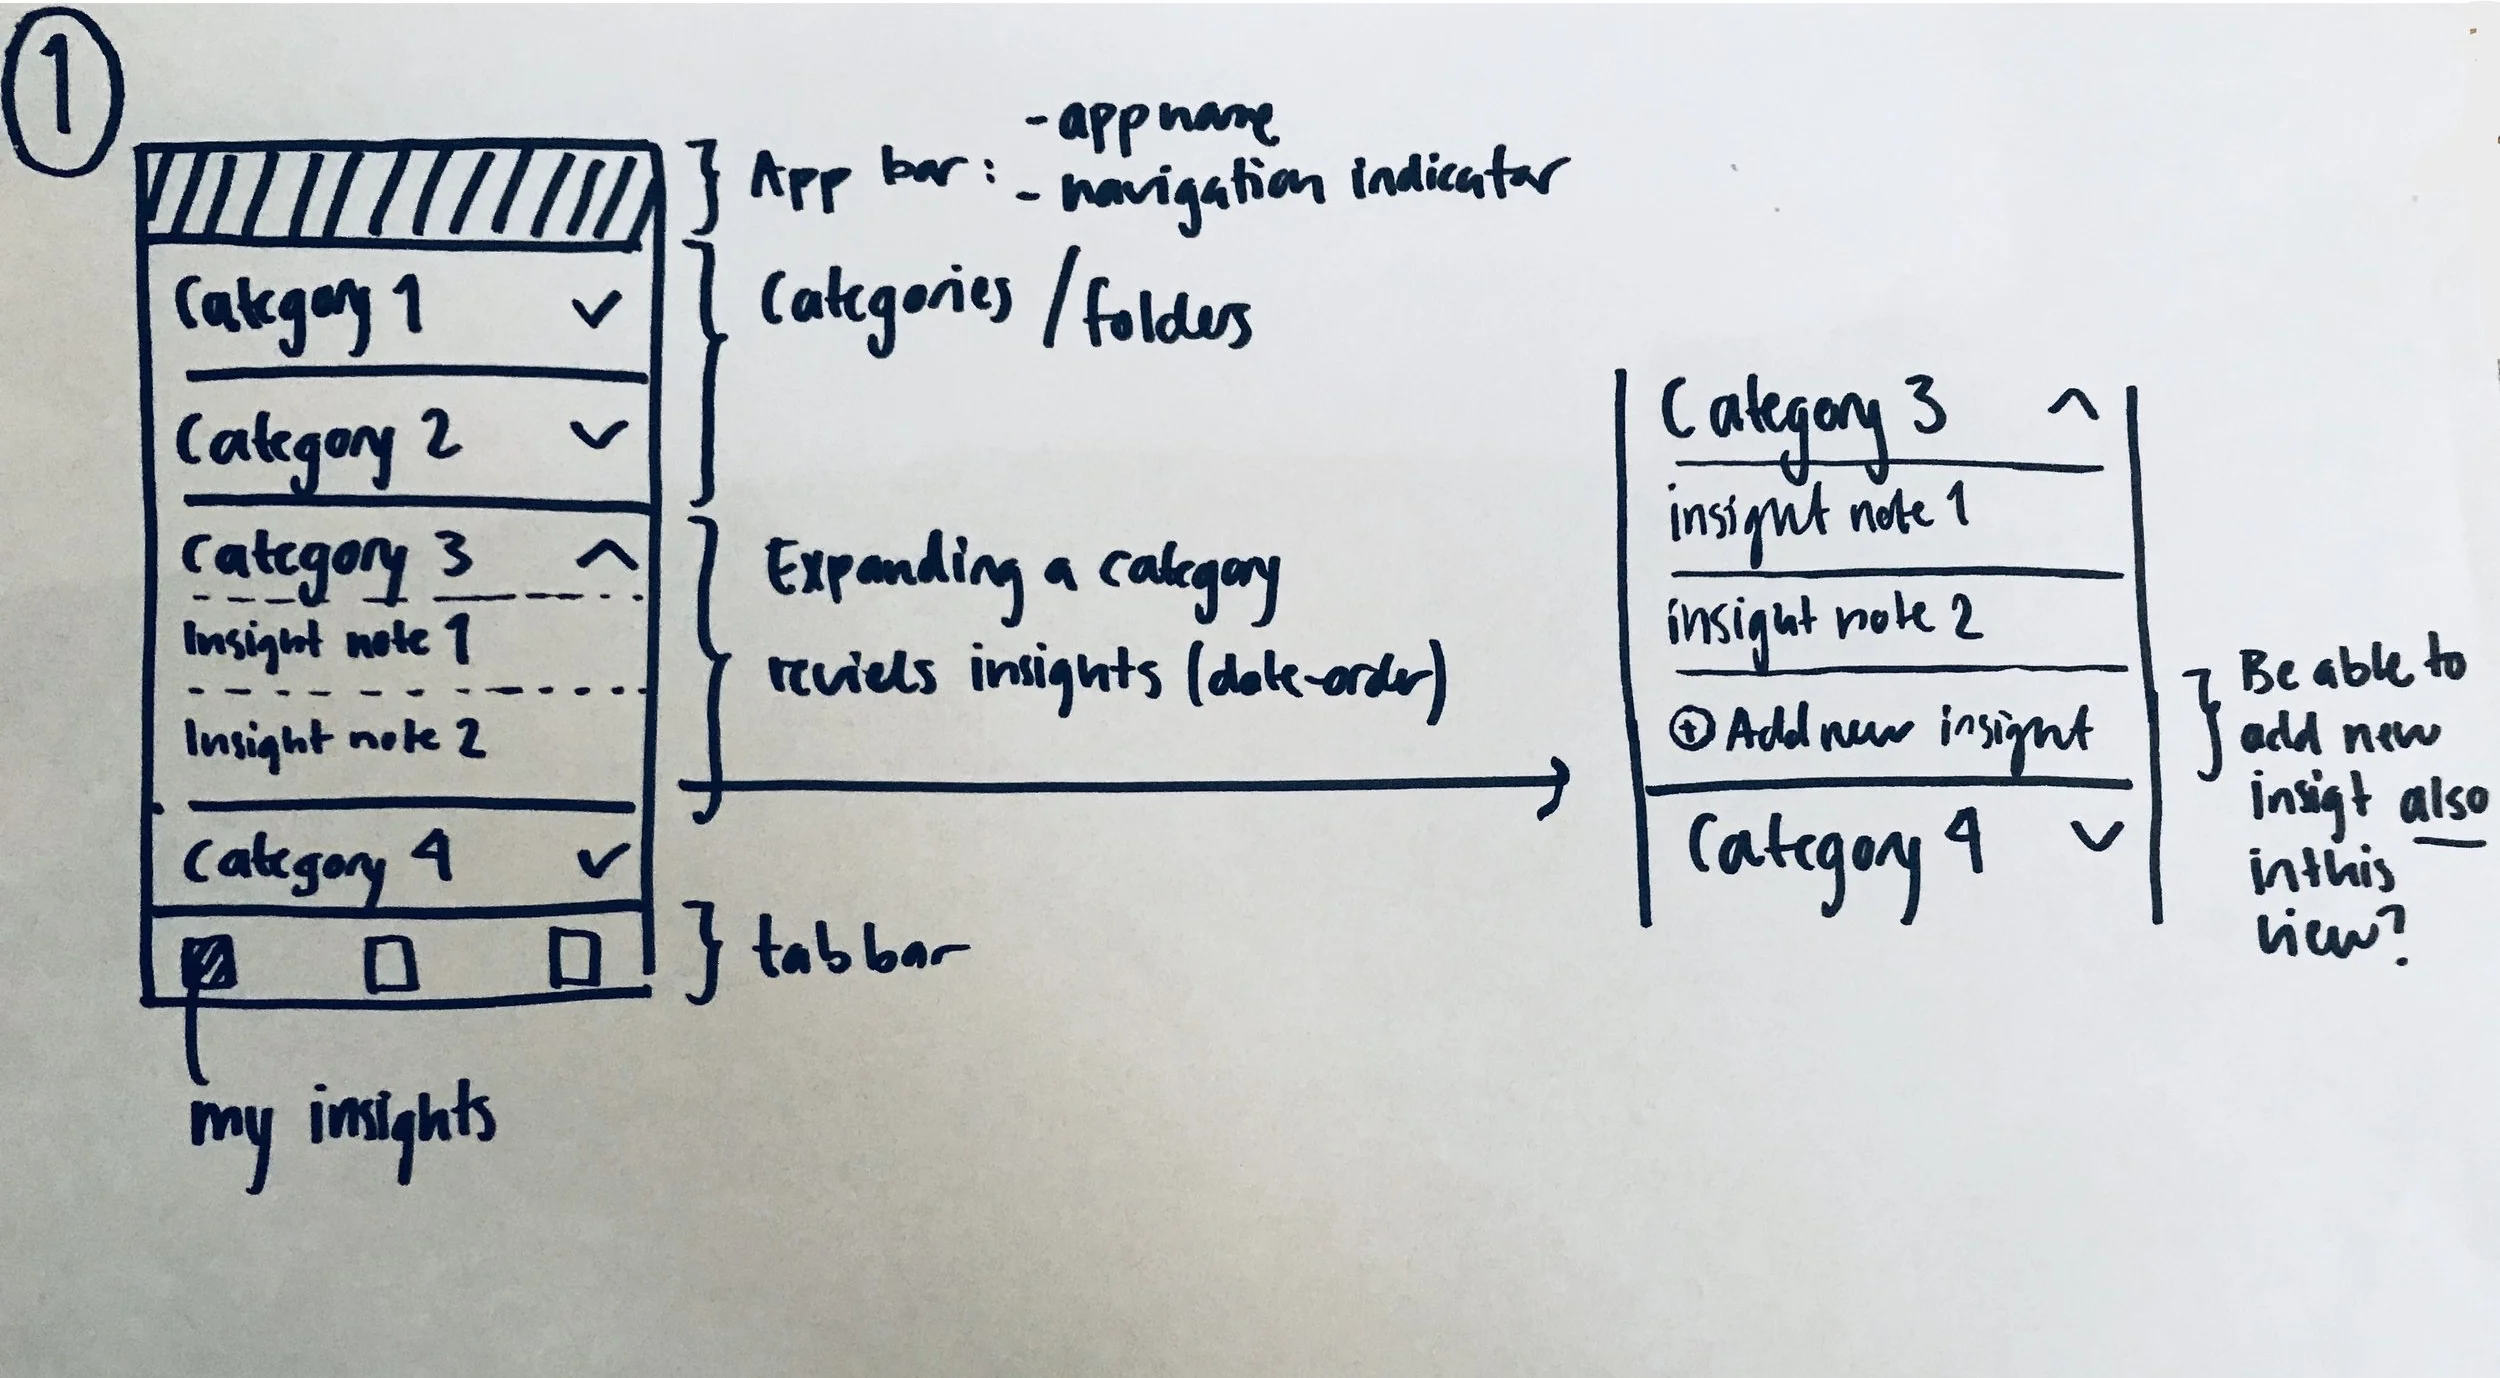 1
- app name
App bar:
- navigation indicator
Category 1
Categories / folders
Category 2
Category 3
Insight note 1
Insight note 2
Category 4
Expanding a category
reviels insights (date-order)
tab bar
my insights
Category 3
insight note 1
insight note 2
+ Add new insight
Category 4
Be able to
add new
insigt also
in this
view?